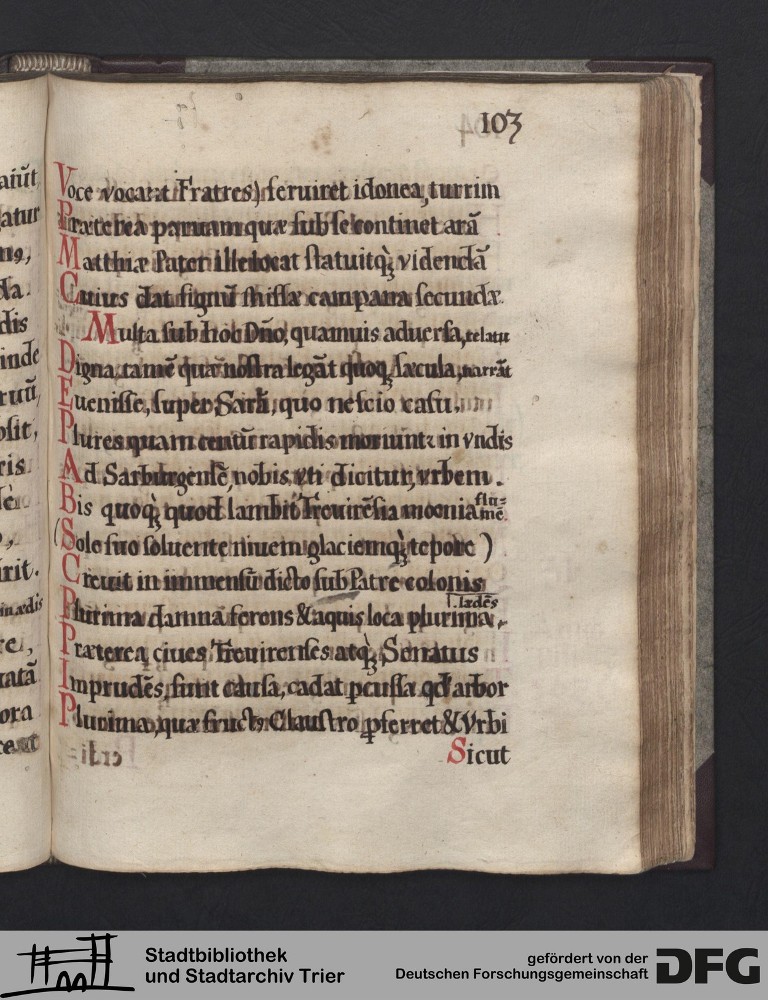 103
Voce vocant Fratres) serviret idonea, turrim
Præterea parvam quæ sub se continet arã
Matthiæ Pater ille locat statuitq́; videndã
Cuius dat signũ missæ campana secundæ.
Multa sub hoc Dño, quamuis aduersa, relatu
Digna, tamẽ quæ nostra legãt quoq; sæcula, narrãt
Euenisse, super Sarã, quo nescio casu.
Plures quam centũ rapidis moriuntr in vndis
Ad Sarburgensẽ, nobis, vti dicitur, vrbem.
Bis quoq́; quod lambit Trevirẽsia moenia flu=
mẽ.
(Sole suo soluente niuem glaciemq́; tepore)
Creuit in immensũ dicto sub Patre colonis
Plurima damna ferens & aquis loca plurima,
l. lædẽs
Præterea, ciues Trevirenses atq́; Senatus
Imprudẽs, sunt causa, cadat pcussa qd arbor
Plurima, quæ fruct9 Claustro pferret & Vrbi
Sicut
Stadtbibliothek
und Stadtarchiv Trier
gefördert von der
Deutschen Forschungsgemeinschaft
DFG